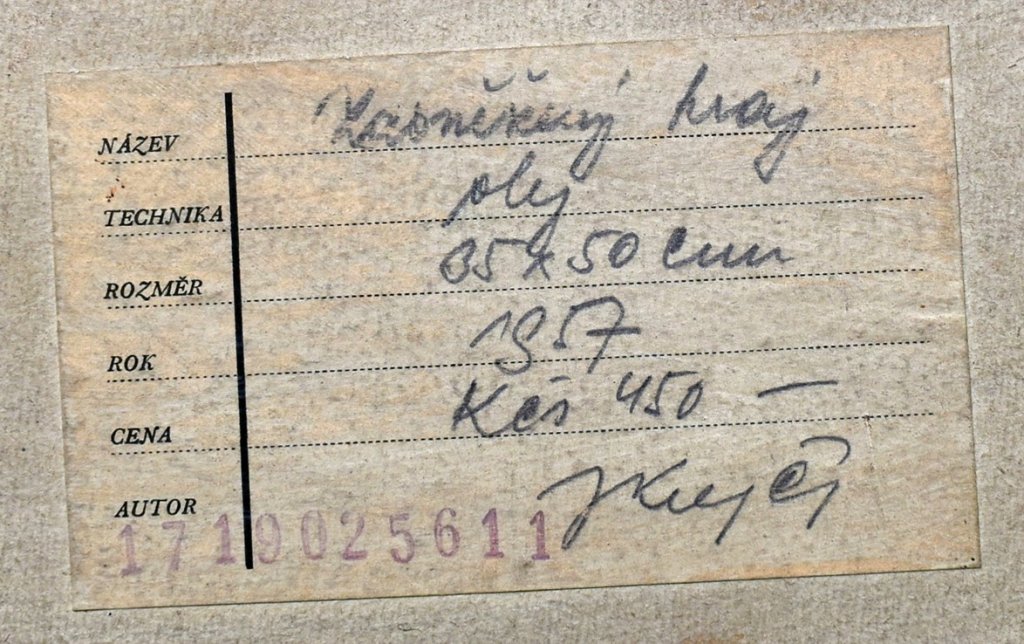 NÁZEV Zasněžený kraj
TECHNIKA olej
ROZMĚR 35 x 50 cm
ROK 1957
CENA Kčs 450 —
AUTOR
1719025611